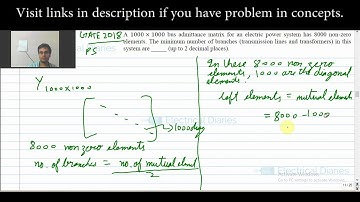 Visit links in description if you have problem in concepts.
GATE 2018 A 1000 × 1000 bus admittance matrix for an electric power system has 8000 non-zero
PS elements. The minimum number of branches (transmission lines and transformers) in this
system are ____ (up to 2 decimal places).
Y 1000×1000
1000 diag
8000 non zero elements
no. of branches = no. of mutual elemt
2
In these 8000 non zero
elements, 1000 are the diagonal
elements.
left elements = mutual element
= 8000 - 1000
Electrical Diaries